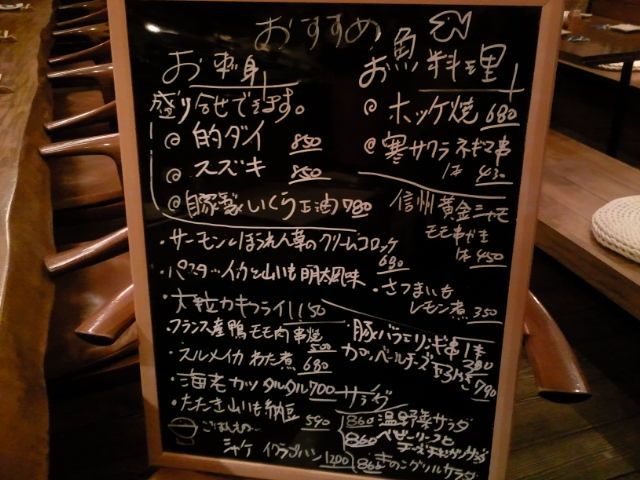 おすすめ
お刺身
盛り合せできます。
@ 的ダイ 850
@ スズキ 850
@ 自家製いくら正油 780
お魚料理
@ ホッケ焼 680
@ 寒サワラ ネギマ串
1本 430
信州黄金シャモ
モモ串やき
1本 450
・さつまいも
レモン煮 350
・サーモンとほうれん草のクリームコロッケ
680
・パスタッ イカと山いも明太風味
・大粒カキフライ 1150
・フランス産鴨モモ肉串焼
500
・スルメイカ わた煮 680
・海老カツ タルタル 700
・たたき山いも納豆 590
・豚バラとリンゴ串 1本
380
カマンベールチーズ
790
サラダ
860 温野菜サラダ
860 ベビーリーフと
860 きのこグリルサラダ
ごはんもの…
シャケ イクラゴハン 1200